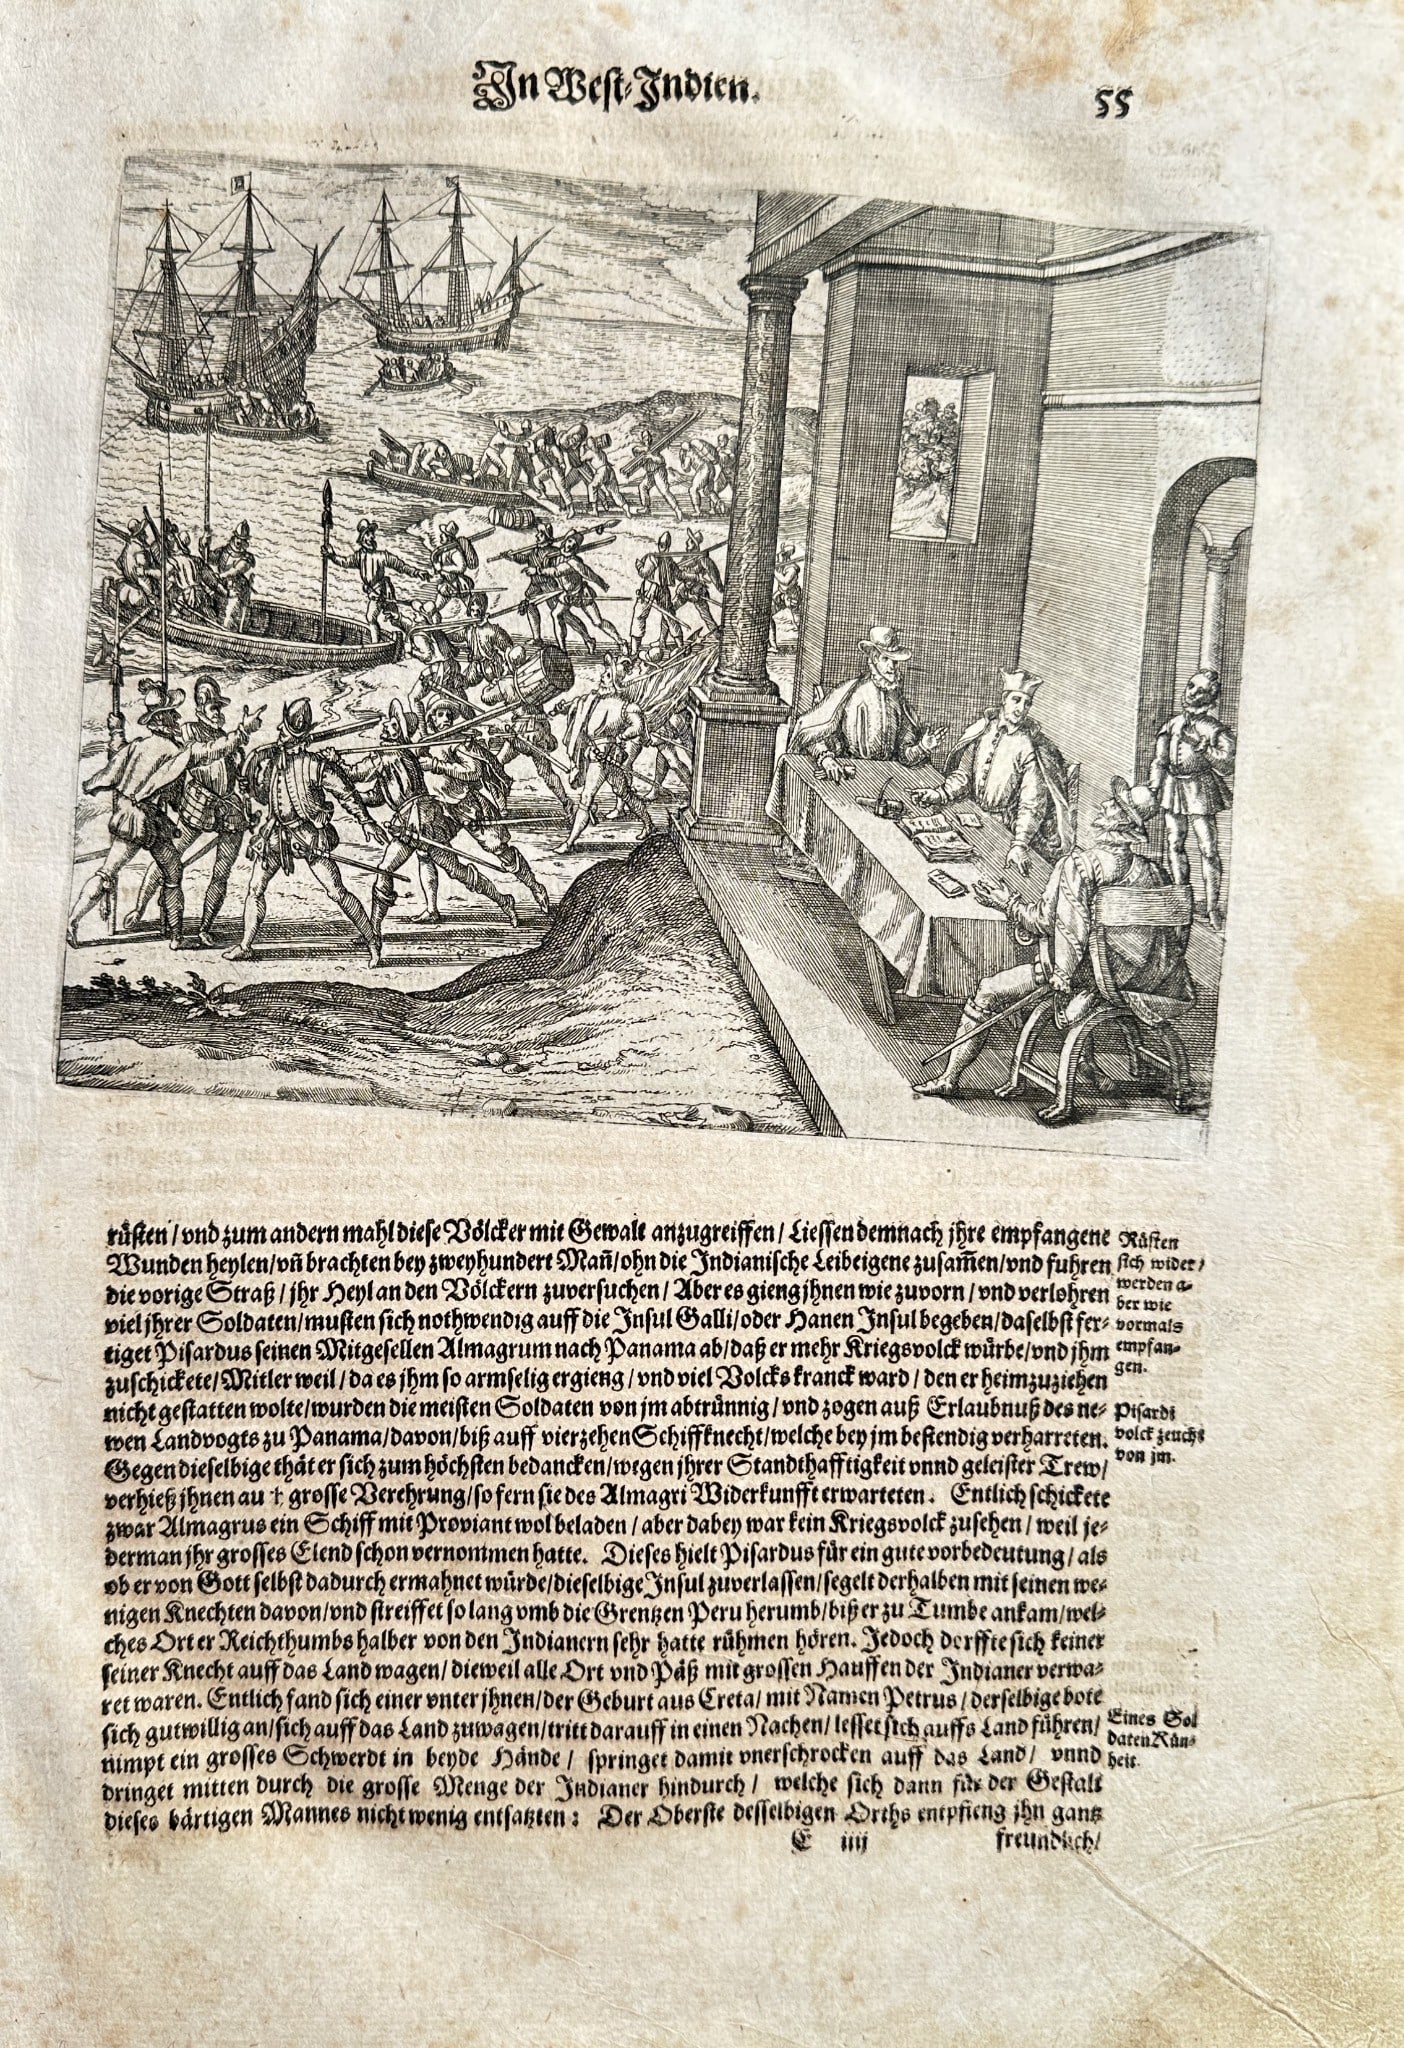 In West-Indien.
55
rüsten / vnd zum andern mahl diese Völcker mit Gewalt anzugreiffen / Liessen demnach jhre empfangene
Wunden heylen / vñ brachten bey zweyhundert Mañ / ohn die Indianische Leibeigene zusam̃en / vnd fuhren
die vorige Straß / jhr Heyl an den Völckern zuversuchen / Aber es gieng jhnen wie zuvorn / vnd verlohren
viel jhrer Soldaten / musten sich nothwendig auff die Insul Galli / oder Hanen Insul begeben / daselbst fer-
tiget Pisardus seinen Mitgesellen Almagrum nach Panama ab / daß er mehr Kriegsvolck würbe / vnd jhm
zuschickete / Mitler weil / da es jhm so armselig ergieng / vnd viel Volcks kranck ward / den er heimzuziehen
nicht gestatten wolte / wurden die meisten Soldaten von jm abtrünnig / vnd zogen auß Erlaubnuß des ne-
wen Landvogts zu Panama / davon / biß auff vierzehen Schiffknecht / welche bey jm bestendig verharreten.
Gegen dieselbige thät er sich zum höchsten bedancken / wegen jhrer Standthafftigkeit vnnd geleister Trew /
verhieß jhnen au grosse Verehrung / so fern sie des Almagri Widerkunfft erwarteten. Entlich schickete
zwar Almagrus ein Schiff mit Proviant wol beladen / aber dabey war kein Kriegsvolck zusehen / weil je-
derman jhr grosses Elend schon vernommen hatte. Dieses hielt Pisardus für ein gute vorbedeutung / als
ob er von Gott selbst dadurch ermahnet würde / dieselbige Insul zuverlassen / segelt derhalben mit seinen we-
nigen Knechten davon / vnd streiffet so lang vmb die Grentzen Peru herumb / biß er zu Tumbe ankam / wel-
ches Ort er Reichthumbs halber von den Indianern sehr hatte rühmen hören. Jedoch dorffte sich keiner
seiner Knecht auff das Land wagen / dieweil alle Ort vnd Päß mit grossen Hauffen der Indianer verwa-
ret waren. Entlich fand sich einer vnter jhnen / der Geburt aus Creta / mit Namen Petrus / derselbige bote
sich gutwillig an / sich auff das Land zuwagen / tritt darauff in einen Nachen / lesset sich auffs Land führen /
nimpt ein grosses Schwerdt in beyde Hände / springet damit vnerschrocken auff das Land / vnnd
dringet mitten durch die grosse Menge der Indianer hindurch / welche sich dann für der Gestalt
dieses bärtigen Mannes nicht wenig entsatzten : Der Oberste desselbigen Orths entpfieng jhn gantz
E iiij
freundlich /
Rüsten
sich wider /
werden a-
ber wie
vormals
empfan-
gen.
Pisardi
volck zeucht
von jm.
Eines Sol
daten Kün-
heit.